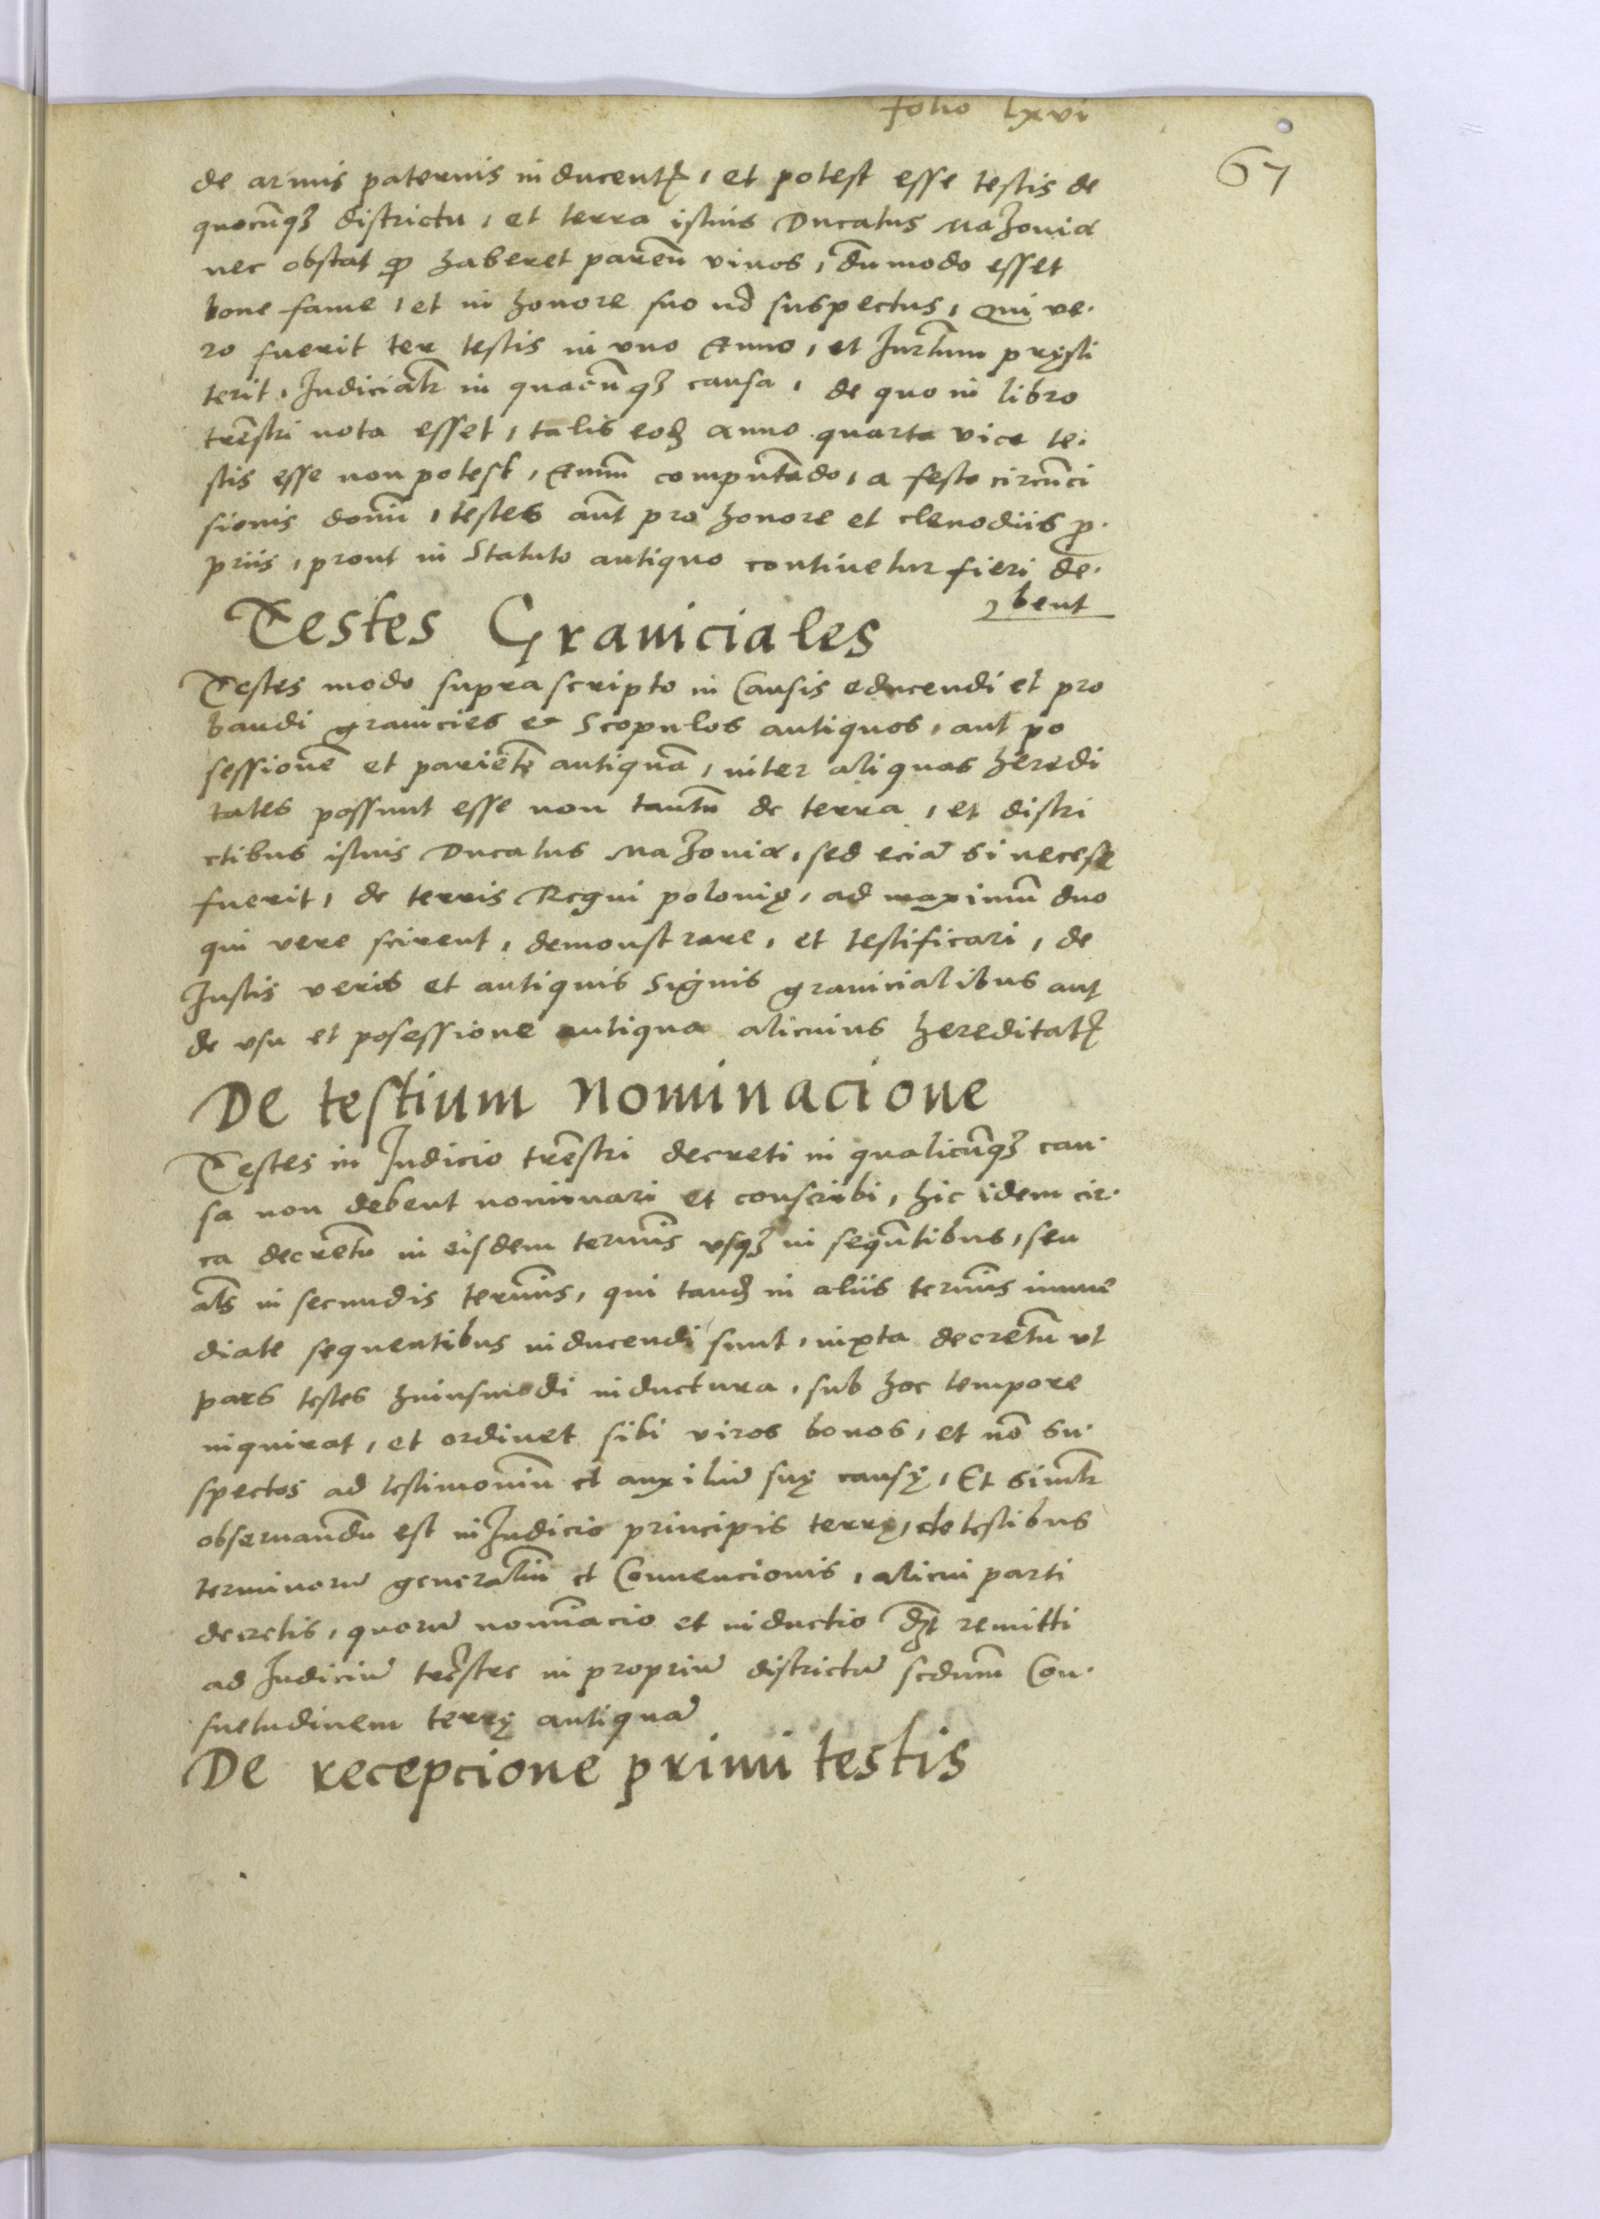 folio lxvi
67
de armis paternis inducentꝭ, et potest esse testis de
quocūqꝫ districtu, et terra istius Ducatus Mazoviæ
nec obstat ꝙ haberet parētē vivos, dūmodo esset
bone fame, et in honore suo nō suspectus, Qui ve·
ro fuerit ter testis in uno Anno, et Jurm̄tum pręsti
terit, Judicialr̄ in quacūqꝫ causa, de quo in libro
tr̄estri nota esset, talis eodꝫ anno quarta vice te·
stis esse non potest, Annū computādo, a festo circūci
sionis domī, testes aūt pro honore et clenodiis ꝓ·
priis, prout in Statuto antiquo continetur fieri de·
bent
Testes Graniciales
Testes modo suprascripto in Causis educendi et pro
bandi granicies et Scopulos antiquos, aut po
sessionē et parietē antiquā, inter aliquas heredi
tates possunt esse non tantū de terra, et distri
ctibus istius Ducatus Mazoviæ, sed eciā si necesse
fuerit, de terris Regni polonię, ad maximū duo
qui vere scirent, demonstrare, et testificari, de
Justis veris et antiquis Signis granicialibus aut
de usu et posessione antiqua alicuius hereditatꝭ
De testium Nominacione
Testes in Judicio tr̄estri decreti in qualicūqꝫ cau·
sa non debent nominari et conscribi, hic idem cir·
ca decretū in eisdem termīs usqꝫ in sequn̄tibus, seu
als̄ in secundis termīis, qui tandꝫ in aliis termīis imme
diate sequentibus inducendi sunt, iuxta decretū ut
pars testes huiusmodi inductura, sub hoc tempore
inquirat, et ordinet sibi viros bonos, et nō su·
spectos ad testimoniū et auxiliū suę causę, Et similr̄
observandū est in Judicio principis terrę, de testibus
terminorū generaliū et Convencionis, alicui parti
decretis, quorū nomīacio et inductio dꝫt remitti
ad Judiciū tr̄estre in propriū districtū secdum̄ Con·
suetudinem terrę antiquā
De recepcione primi testis